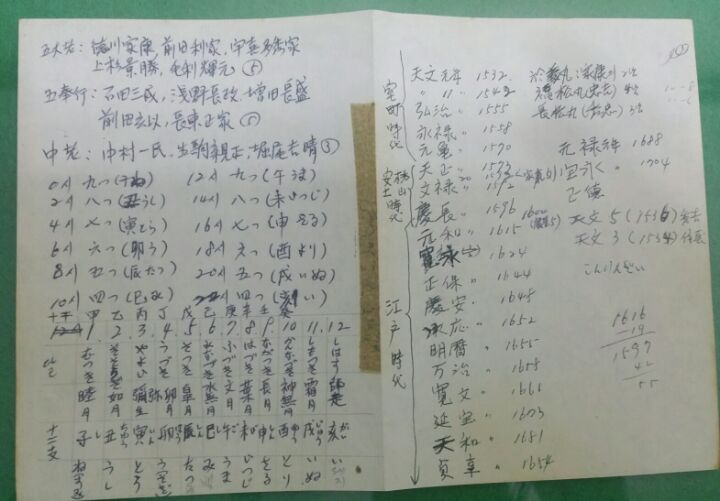 五大老：徳川家康，前田利家，宇喜多秀家
上杉景勝，毛利輝元 ⑤
五奉行：石田三成，浅野長政，増田長盛
前田玄以，長束正家 ⑤
中老：中村一氏，生駒親正，堀尾吉晴 ③
0时 九つ(子ね) 12时 九つ(午うま)
2时 八つ(丑うし) 14时 八つ(未ひつじ)
4时 七つ(寅とら) 16时 七つ(申さる)
6时 六つ(卯う) 18时 六(酉とり)
8时 五つ(辰たつ) 20时 五つ(戌いぬ)
10时 四つ(巳み) 四つ(亥い)
十干 甲 乙 丙 丁 戊 己 庚 辛 壬 癸
1. 2. 3. 4. 5. 6. 7. 8. 9. 10. 11. 12
むつき 睦月
如月
やよい 弥生
うづき 卯月
さつき 皐月
みなづき 水無月
ふづき 文月
はづき 葉月
ながつき 長月
かんなづき 神無月
しもつき 霜月
しはす 師走
十二支 子 丑 寅 卯 辰 巳 午 未 申 酉 戌 亥
ねずみ うし とら うさぎ たつ み うま ひつじ さる とり いぬ い
室町時代
天文元年 1532
〃 11 〃 1542
弘治 〃 1555
永禄 〃 1558
元亀 〃 1570
安土桃山時代
天正 〃 1573
文禄 〃 1592
慶長 〃 1596 1600
江戸時代
元和 〃 1615
寛永 〃 1624
正保 〃 1644
慶安 〃 1648
承応 〃 1652
明暦 〃 1655
万治 〃 1658
寛文 〃 1661
延宝 〃 1673
天和 〃 1681
貞享 〃 1684
長松丸(秀忠)
元禄元年 1688
宝永 〃 1704
正徳
天文5(1536)秀吉
天文3(1534)信長
1616
-19
1597
42
55